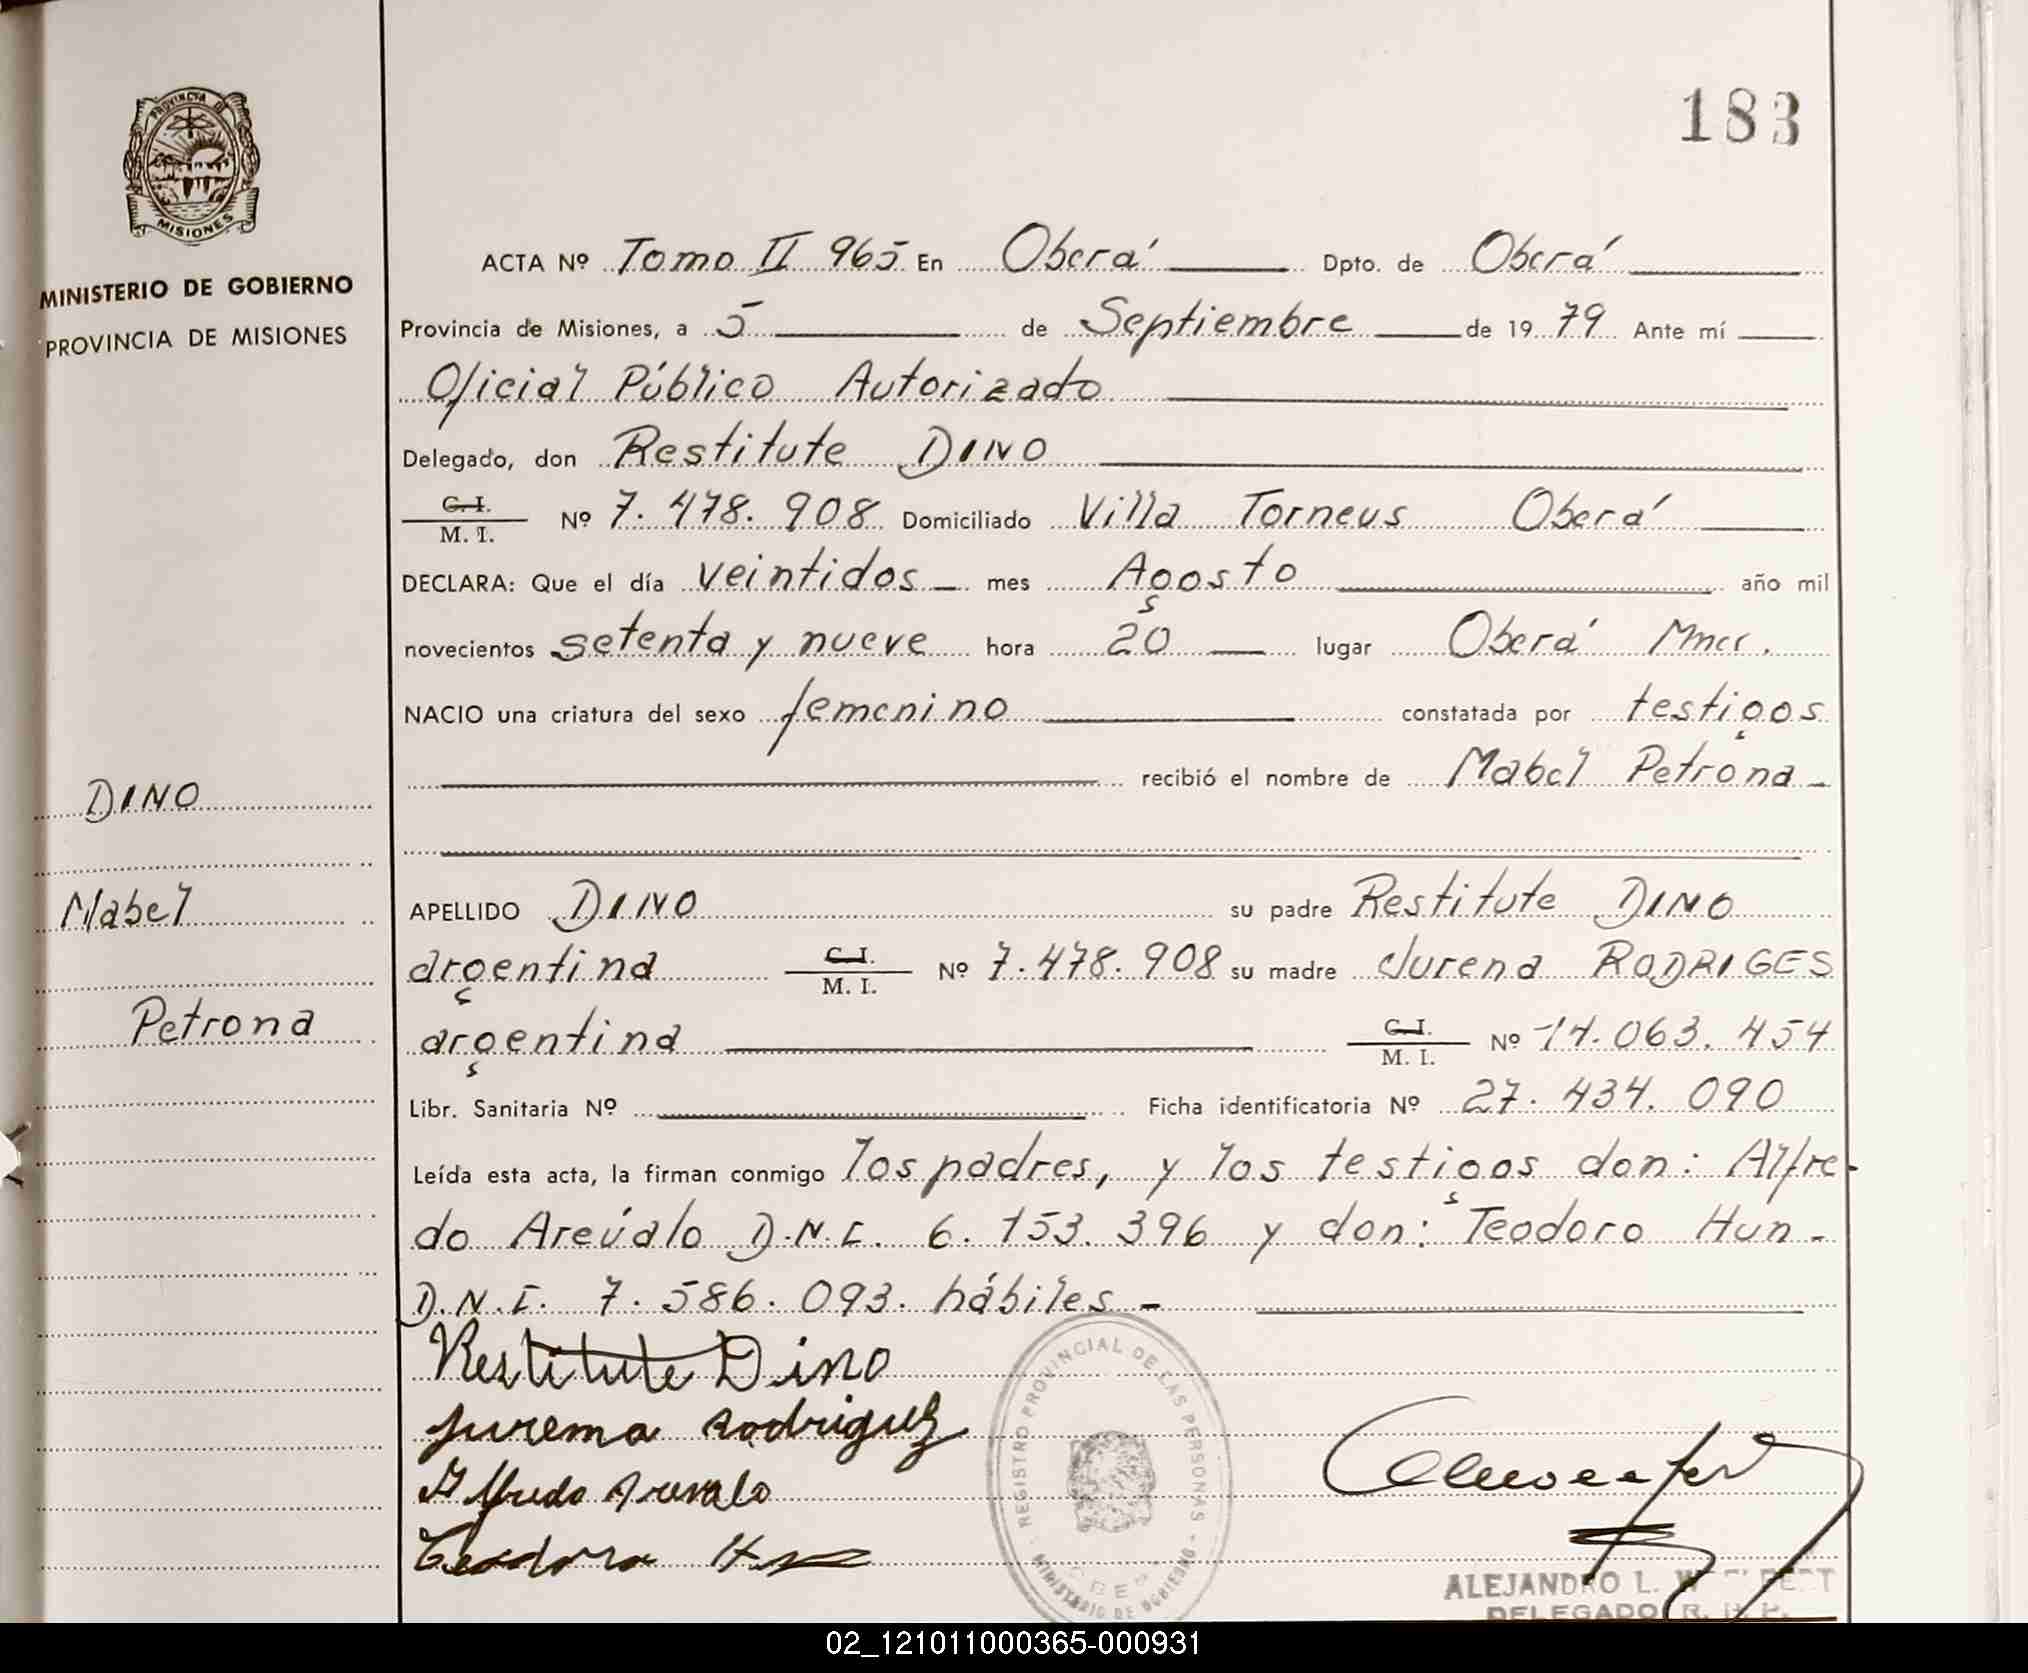 183
PROVINCIA DE
MISIONES
MINISTERIO DE GOBIERNO
PROVINCIA DE MISIONES
ACTA Nº Tomo II 965 En Oberá Dpto. de Oberá
Provincia de Misiones, a 5 de Septiembre de 1979 Ante mí
Oficial Público Autorizado
Delegado, don Restitute DINO
C. I.
M. I. Nº 7.478.908 Domiciliado Villa Torneus Oberá
DECLARA: Que el día veintidos mes Agosto año mil
novecientos setenta y nueve hora 20 lugar Oberá Mnes.
NACIO una criatura del sexo femenino constatada por testigos
recibió el nombre de Mabel Petrona
DINO
Mabel
Petrona
APELLIDO DINO su padre Restitute DINO
argentina C. I. M. I. Nº 7.478.908 su madre Jurena RODRIGES
argentina C. I. M. I. Nº 14.063.454
Libr. Sanitaria Nº Ficha identificatoria Nº 27.434.090
Leída esta acta, la firman conmigo los padres, y los testigos don: Alfre-
do Arevalo D.N.I. 6.153.396 y don: Teodoro Hun-
D.N.I. 7.586.093. hábiles -
Restitute Dino
Jurema Rodriguez
Alfredo Arevalo
Teodoro
REGISTRO PROVINCIAL DE LAS PERSONAS
MINISTERIO DE GOBIERNO
ALEJANDRO L.
DELEGADO R. P.
02_121011000365-000931